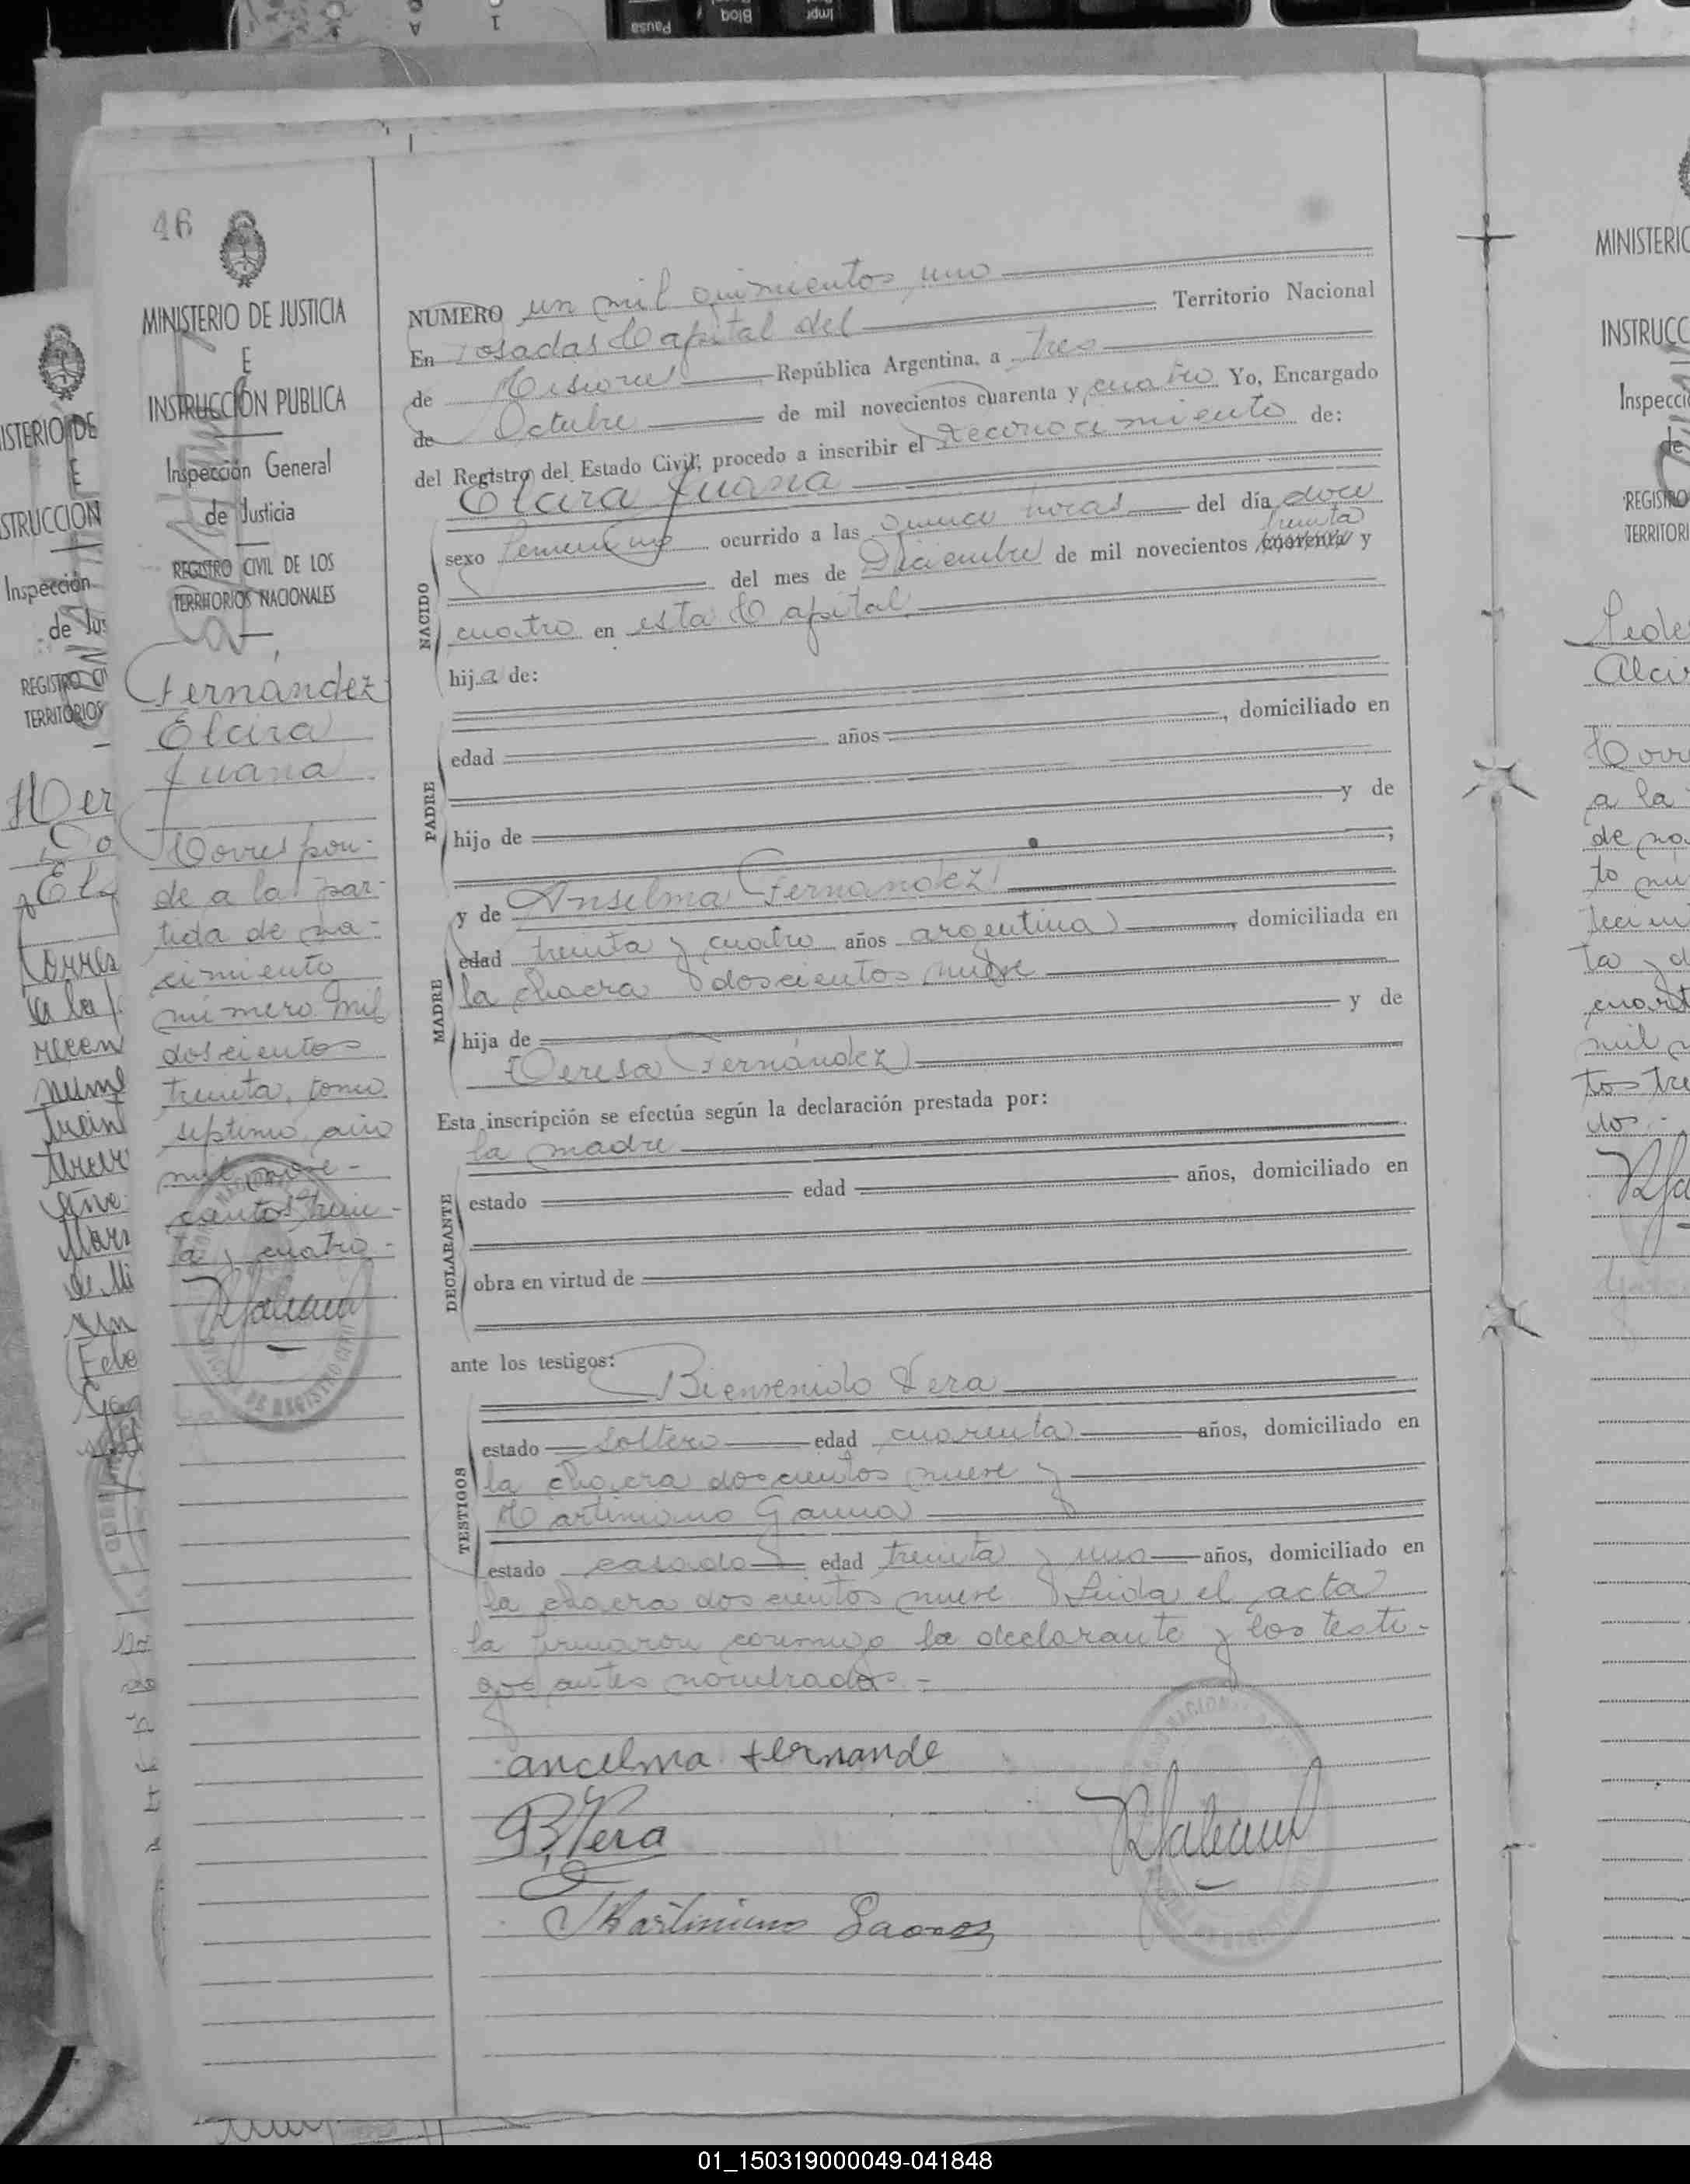 Pausa
Bloq
Impr
A
1
46
MINISTERIO DE JUSTICIA
E
INSTRUCCIÓN PUBLICA
Inspección General
de Justicia
REGISTRO CIVIL DE LOS
TERRITORIOS NACIONALES
Fernández
Elcira
Juana
Corres pon-
de a la par-
tida de na-
cimiento
número mil
doscientos
treinta, tomo
septimo año
mil nove-
cientos trein-
ta y cuatro-
NUMERO un mil quinientos uno
En Posadas Capital del Territorio Nacional
de Misiones República Argentina, a tres
de Octubre de mil novecientos cuarenta y cuatro Yo, Encargado
del Registro del Estado Civil, procedo a inscribir el Reconocimiento de:
Elcira Juana
sexo femenino ocurrido a las quince horas del día doce
treinta
del mes de Diciembre de mil novecientos cuarenta y
cuatro en esta Capital
NACIDO
hija de:
edad años , domiciliado en
PADRE
hijo de y de
,
y de Anselma Fernandez
edad treinta y cuatro años argentina , domiciliada en
la chacra doscientos nueve
MADRE
hija de y de
Teresa Fernández
Esta inscripción se efectúa según la declaración prestada por:
la madre
estado edad años, domiciliado en
DECLARANTE
obra en virtud de
ante los testigos:
Bienvenido Vera
estado soltero edad cuarenta años, domiciliado en
la chacra doscientos nueve y
TESTIGOS
Martiniano Gauna
estado casado edad treinta y uno años, domiciliado en
la chacra doscientos nueve Leida el acta
la firmaron conmigo la declarante y los testi-
gos antes nombrados.-
ancelma fernande
B Vera
Martiniano
ISTERIO DE
E
STRUCCION
Inspección
de Jus
REGISTRO CI
TERRITORIOS
MINISTERIO
INSTRUCC
Inspecció
de
REGISTRO
TERRITORI
Alcir
Corre
a la
de na
to nú
ta y d
mil n
tos tre
dos.-
01_150319000049-041848